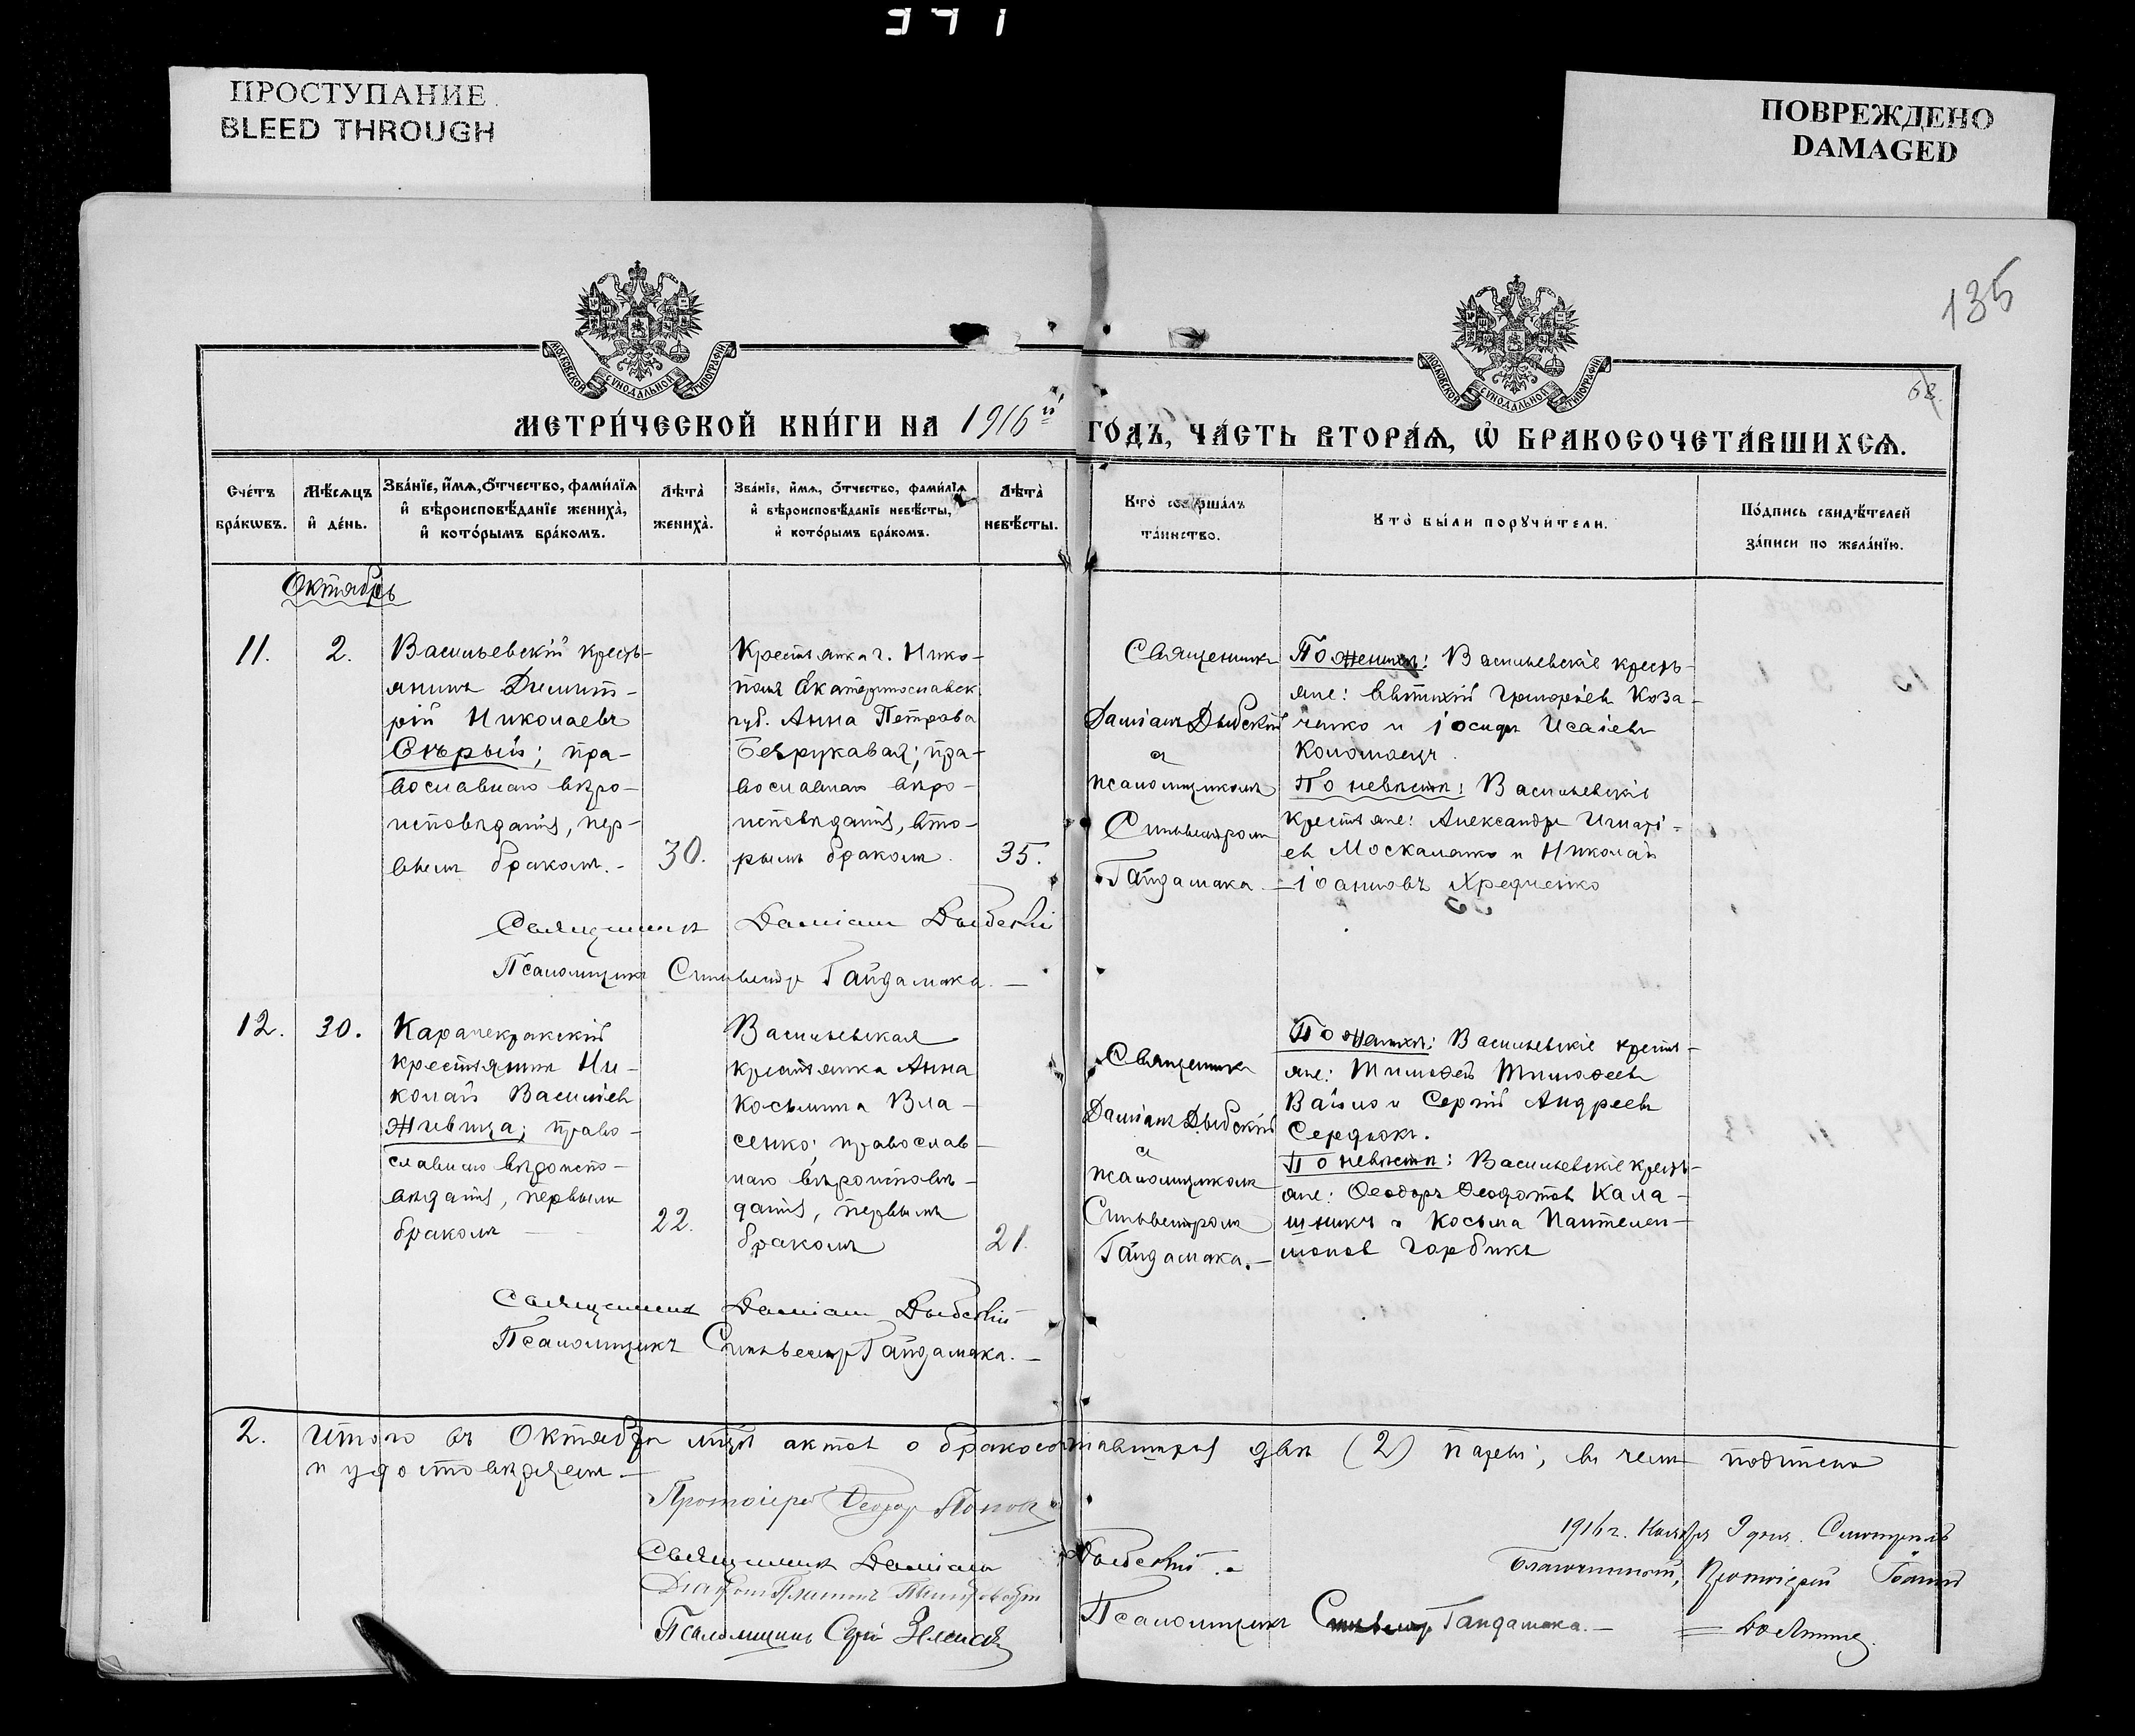 371
ПРОСТУПАНИЕ
BLEED THROUGH
ПОВРЕЖДЕНО
DAMAGED
135
МОСКОВСКОЙ СѴНОДАЛЬНОЙ ТИПОГРАФІИ
МОСКОВСКОЙ СѴНОДАЛЬНОЙ ТИПОГРАФІИ
МЕТРИ́ЧЕСКОЙ КНИ́ГИ НА 1916й ГО́ДЪ, ЧА́СТЬ ВТОРА́Ѧ, Ѡ҆ БРАКОСОЧЕТА́ВШИХСѦ.
Сче́тъ
бра́кѡвъ.
Мѣ́сѧцъ
и҆ де́нь.
Зва́нїе, и҆́мѧ, ѻ҆́тчество, фами́лїѧ
и҆ вѣроисповѣ́данїе жениха̀,
и҆ кото́рымъ бра́комъ.
Лѣта̀
жениха̀.
Зва́нїе, и҆́мѧ, ѻ҆́тчество, фами́лїѧ
и҆ вѣроисповѣ́данїе невѣ́сты,
и҆ кото́рымъ бра́комъ.
Лѣта̀
невѣ́сты.
Кто̀ соверша́лъ
та́инство.
Кто̀ бы́ли порꙋчи́тели.
По́дпись свидѣ́телей
за́писи по жела́нїю.
Октябрь
11.
2.
Васильевскій кресть-
янинъ Димит-
рій Николаевъ
Сѣрый; пра-
вославнаго вѣро-
исповѣданія, пер-
вымъ бракомъ.-
30.
Крестьянка г. Нико-
поля Екатеринославск.
губ. Анна Петрова
Безрукавая; пра-
вославнаго вѣро-
исповѣданія, вто-
рымъ бракомъ.
35.
Священникъ
Даміанъ Дыбскій
съ
псаломщикомъ
Сильвестромъ
Гайдамака.
По женихѣ: Васильевскіе кресть-
яне: Евтихій Григорьевъ Коза-
ченко и Іосифъ Исаіевъ
Коломоецъ.
По невѣстѣ: Васильевскіе
крестьяне: Александръ Игнаті-
евъ Москаленко и Николай
Іоанновъ Хредченко
Священникъ Даміанъ Дыбскій
Псаломщикъ Сильвестръ Гайдамака. —
12.
30.
Карачекракскій
крестьянинъ Ни-
колай Васильевъ
Живица; право-
славнаго вѣроиспо-
вѣданія, первымъ
бракомъ
22.
Васильевская
крестьянка Анна
Косьмина Вла-
сенко; православ-
наго вѣроисповѣ-
данія, первымъ
бракомъ
21.
Священникъ
Даміанъ Дыбскій
съ
псаломщикомъ
Сильвестромъ
Гайдамака. —
По женихѣ: Васильевскіе кресть-
яне: Тимоѳей Тимоѳеевъ
Вайло и Сергій Андреевъ
Середюкъ.
По невѣстѣ: Васильевскіе кресть-
яне: Ѳеодоръ Ѳеодотовъ Кала-
шникъ и Косьма Пантелеи-
моновъ Горбикъ
Священникъ Даміанъ Дыбскій
Псаломщикъ Сильвестръ Гайдамака. —
2.
Итого въ Октябрѣ м-цѣ актовъ о бракосочетавшихся двѣ (2) пары; въ чемъ подписью
и удостовѣряемъ —
Протоіерей Ѳеодоръ Поповъ
Священникъ Даміанъ Дыбскій.
Псаломщикъ Сильвестръ Гайдамака. —
Псаломщикъ Сергій
1916 г. Ноября 9 дня. Смотрѣлъ
Благочинный, Протоіерей Іоаннъ